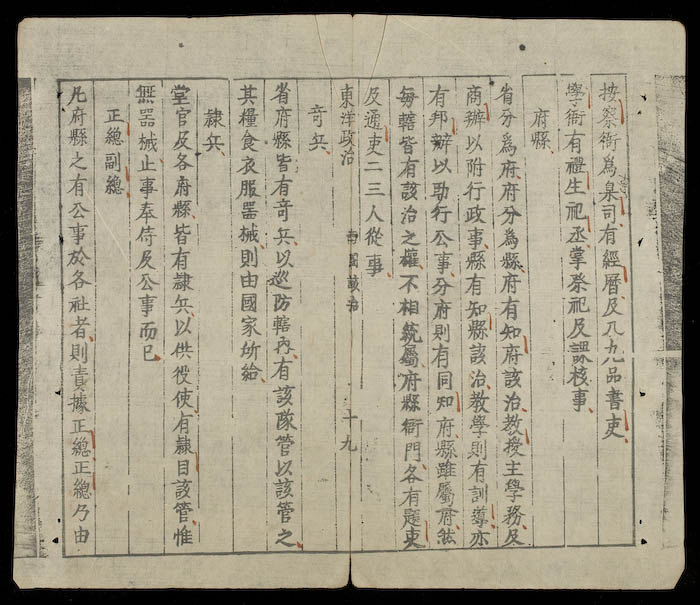 按察衙為臬司有經曆及八九品書吏
學衙有禮生祀丞掌祭祀及課核事
府縣
省分爲府府分爲縣府有知府該治教授主學務及
商辦以附行政事縣有知縣該治教學則有訓導亦
有邦辦以助行公事分府則有同知府縣雖屬府然
每轄皆有該治之權不相統屬府縣衙門各有題吏
及通吏二三人從事
東洋政治 南國該治 十九
奇兵
省府縣皆有奇兵以巡防轄內有該隊管以該管之
其糧食衣服器械則由國家所給
隸兵
堂官及各府縣皆有隸兵以供役使有隸目該管惟
無器械止事奉侍及公事而已
正總副總
凡府縣之有公事於各社者則責據正總正總乃由